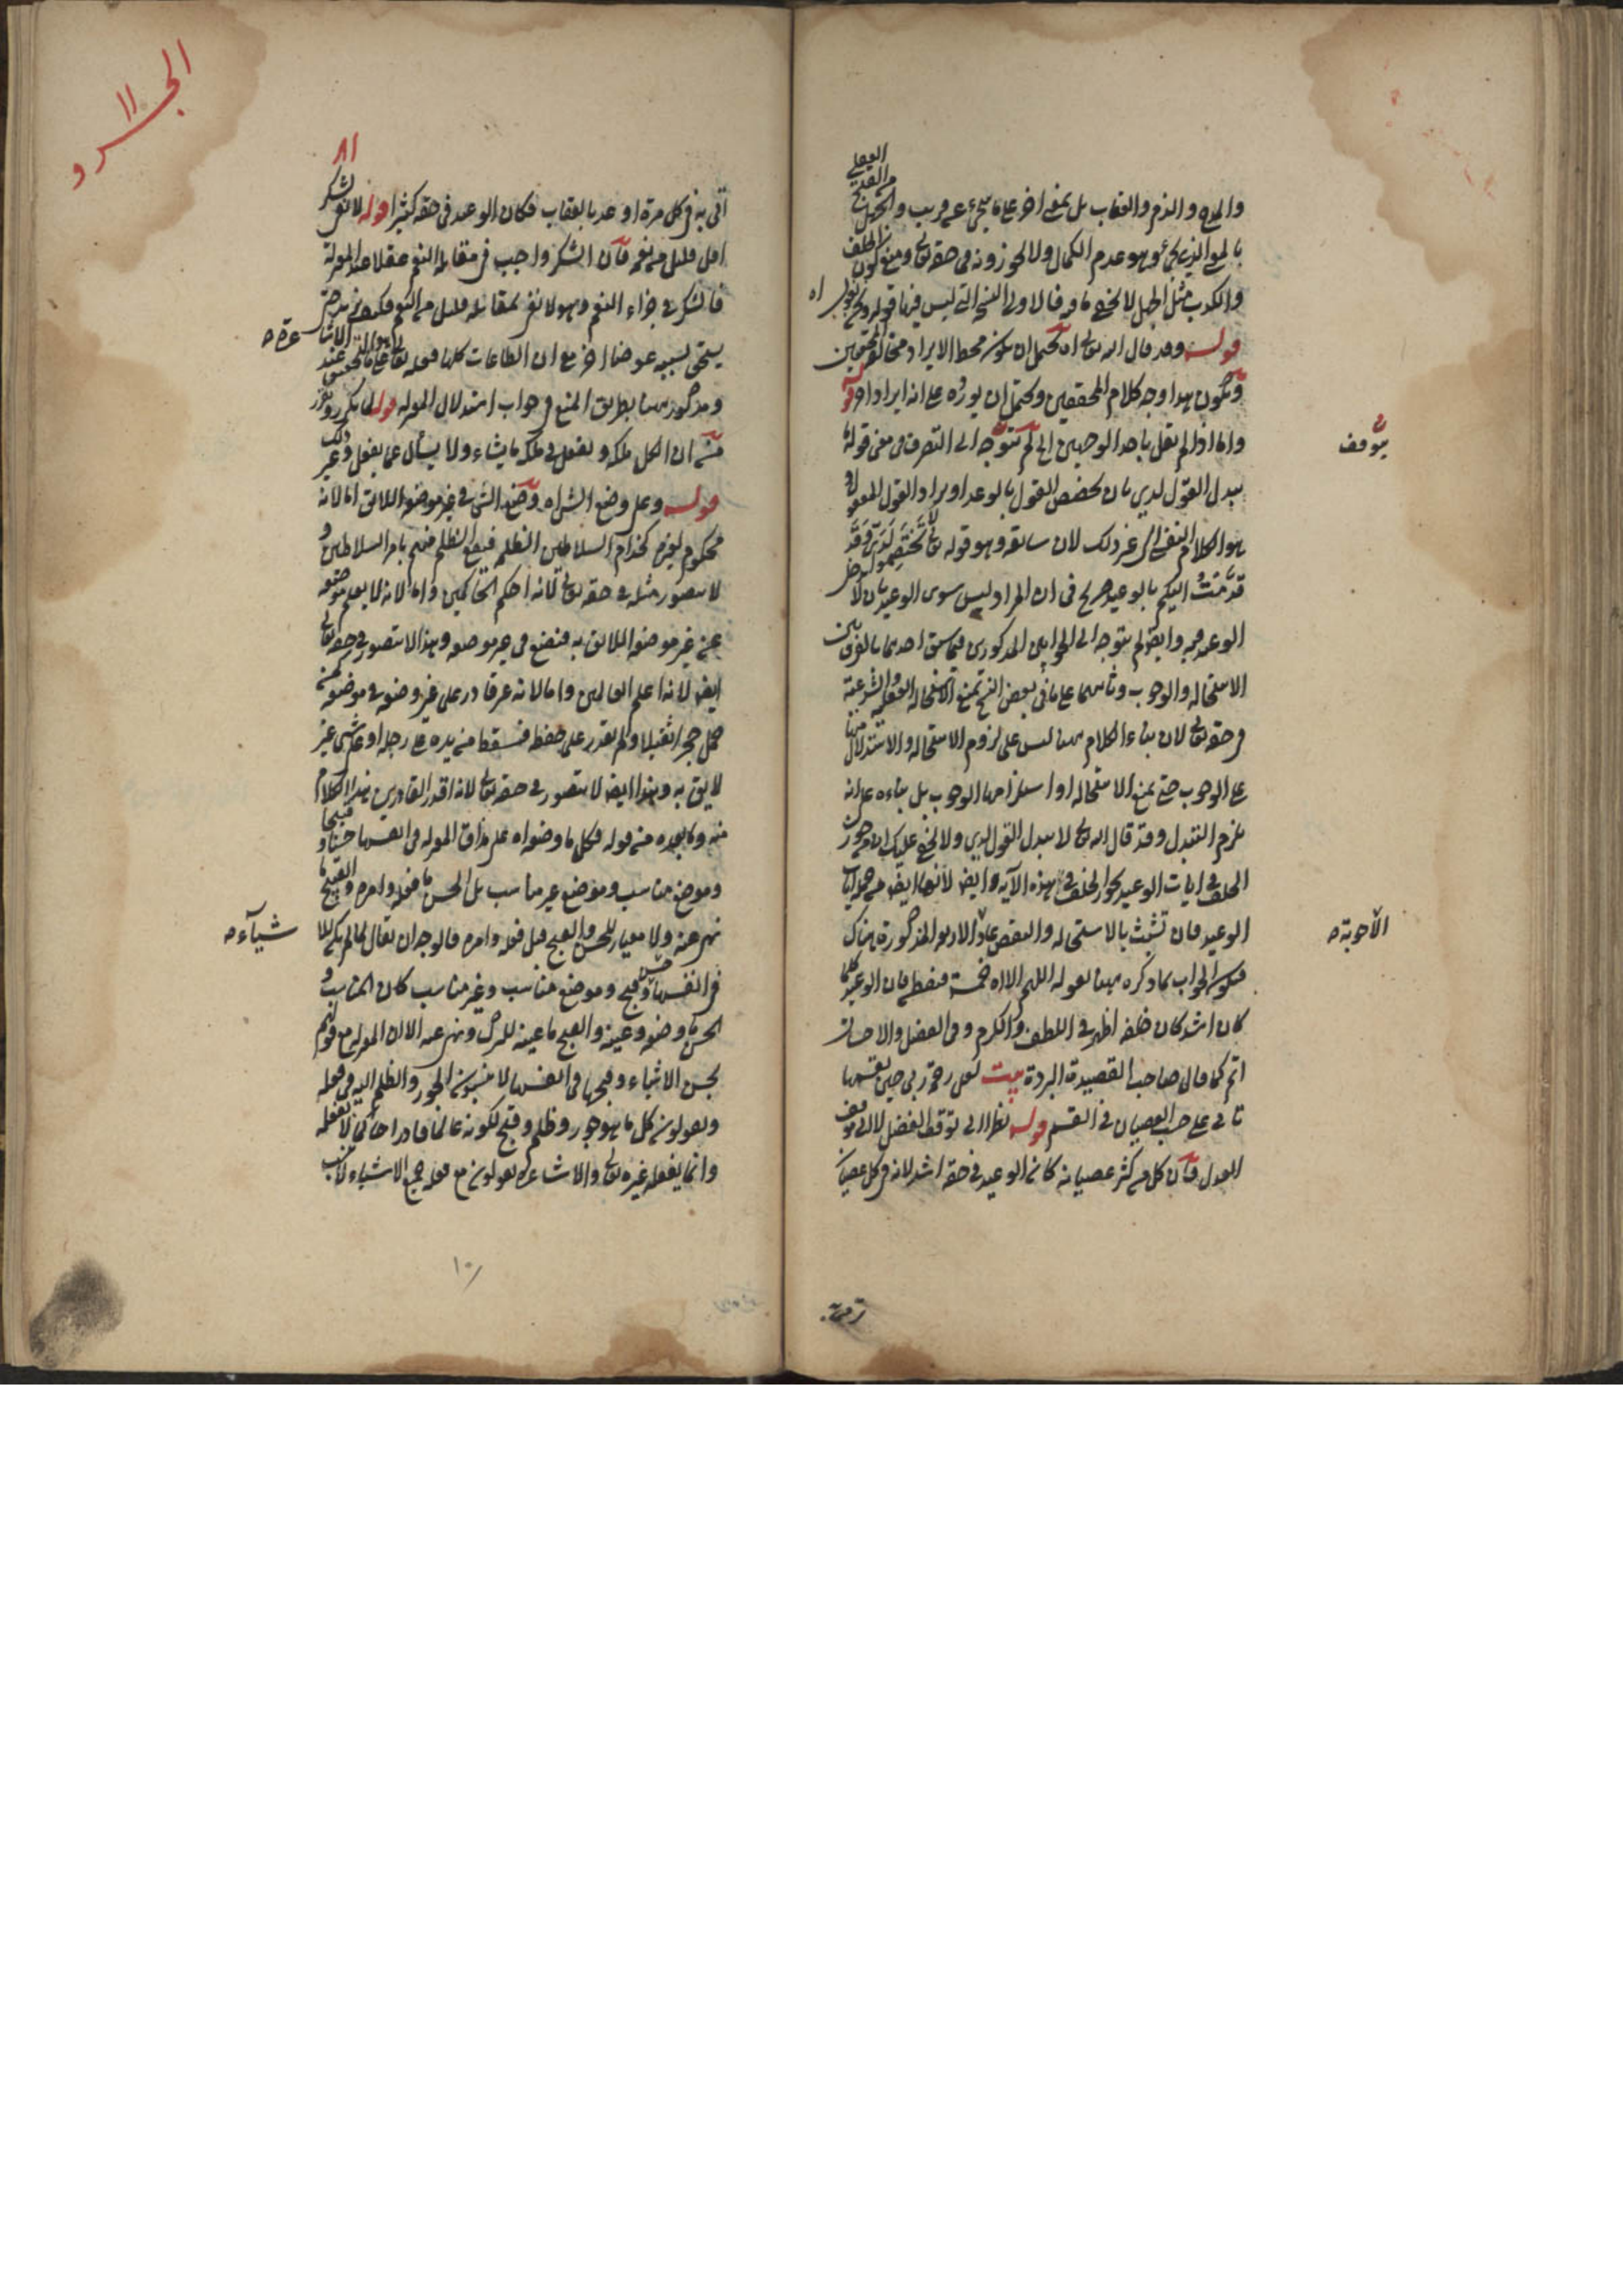 العقلي
والمدح والذم والعقاب بل بمعنى اخر على ما سيجيء عن قريب والجهل
بالمعنى الذي يجيء وهو عدم الكمال ولا يجوزونه في حقه تعالى ومنع كون الخلف
والكذب مثل الجهل لا يخفى ما فيه فالاولى النسخة التي ليس فيها قوله
قوله وقد قال الله تعالى اه يحتمل ان يكون محط الايراد مخالفة المحققين
ويكون هذا وجه كلام المحققين ويحتمل ان يورده على انه ايراد اخر قوله
واما اذا لم نقل باحد الوجهين الى لم يتوجه الى التصرف في معنى قوله
يبدل القول لدي بان يخصص القول بالوعد او يراد القول
هو الكلام النفسي الى غير ذلك لان سابقه وهو قوله تعالى لا تختصموا لدي وقد
قدمت اليكم بالوعيد صريح في ان المراد ليس سوى الوعيد بان لا
الوعد فيه وايضا لم يتوجه الى الجوابين المذكورين فيما سبق احدهما بالفرق بين
الاستحالة والوجوب وثانيهما على ما في بعض النسخ بمنع الاستحالة العقلية والشرعية
في حقه تعالى لان بناء الكلام ههنا ليس على لزوم الاستحالة والاستدلال منها
على الوجوب حتى يمنع الاستحالة او استلزامها الوجوب بل بناءه على انه
يلزم التبدل وقد قال الله تعالى لا يبدل القول لدي ولا يخفى عليك
الخلف في ايات الوعيد يجوز الخلف في هذه الآية وايضا لانها ايضا من جملة ايات
الوعيد فان تشبث بالاستحالة والنقص عاد الاربعة المذكورة هناك
فيكون الجواب بما ذكره ههنا بقوله اللهم الا اه خمسة فقط فان الوعيد كلما
كان اشد كان خلفه اظهر في اللطف والكرم وفي الفضل والاحسان
اتم كما قال صاحب القصيدة البردة بيت لعل رحمة ربي حين يقسمها
تاتي على حسب العصيان في القسم قوله نظرا الى توقف الفضل لا الى توقف
العدل فان كل من كثر عصيانه كان الوعيد في حقه اشد لانه في كل عصيان
يتوقف
الاجوبة صح
٨١
اتى به في كل مرة اوعد بالعقاب فكان الوعيد في حقه كثيرا قوله لا تفي بشكر
اقل قليل من نعمه فان الشكر واجب في مقابلة النعم عقلا عند المعتزلة
فالشكر جزاء النعم وهو لا تفي بمقابلة قليل من النعم فكيف
يستحق بسببه عوضا اخر مع ان الطاعات كلها فعله تعالى على ما هو التحقيق عند الاشا
عرة صح
ومذكور ههنا بطريق المنع في جواب استدلال المعتزلة قوله لما تكرر وتقرر
منه ان الكل ملكه ويفعل في ملكه ما يشاء ولا يسأل عما يفعل وغير ذلك
قوله وعلى وضع الشيء اه وضع الشيء في غير موضعه اللائق اما لانه
محكوم لغيره كخدام السلاطين الظلمة فيقع الظلم منهم بامر السلاطين و
لا يتصور مثله في حقه تعالى لانه احكم الحاكمين واما لانه لا يعلم موضعه
عن غير موضعه اللائق به فيضع في غير موضعه وهذا لا يتصور في حقه تعالى
ايضا لانه اعلم العالمين واما لانه غير قادر على وضعه في موضعه كمن
حمل حجرا ثقيلا ولم يقدر على حفظه فسقط من يده على رجله او على شيء غير
لايق به وهذا ايضا لا يتصور في حقه تعالى لانه اقدر القادرين هذا الكلام
منه وما بعده من قوله فكل ما وضعه اه على مذاق المعتزلة في انفسها حسنا وقبيحا
وموضع مناسب وموضع غير مناسب بل الحسن ما فعله وامره والقبيح ما
نهى عنه ولا معيار للحسن والقبيح قبل فعله وامره فالوجه ان يقال لما لم يكن للا
شيآء صح
في انفسها حسن وقبيح وموضع مناسب وغير مناسب كان المناسب و
الحسن ما وضعه وعينه والقبيح ما عينه للترك ونهى عنه الا ان المعتزلة مع قولهم
بحسن الاشياء وقبحها في انفسها لا ينسبون الجور والظلم اليه في فعله
ويقولون كل ما هو جور وظلم وقبيح لكونه عالما قادرا حاكما لا يفعله
وانما يفعله غيره تعالى والاشاعرة يقولون مع فعله جميع الاشياء لا ينسب
١٠